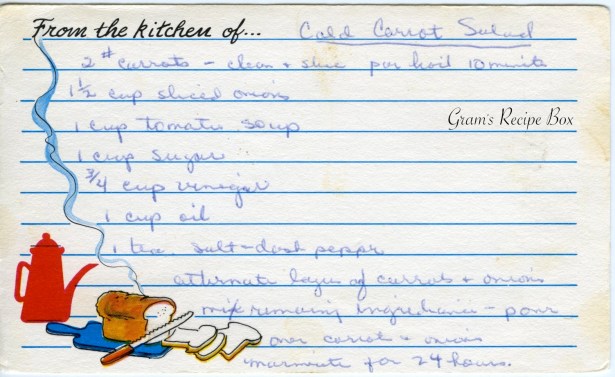 From the kitchen of... Cold Carrot Salad
2 # carrots - clean + slice par boil 10 minits
1 1/2 cup sliced onions
Gram's Recipe Box
1 cup tomato soup
1 cup sugar
3/4 cup vinegar
1 cup oil
1 tea. salt - dash pepper
alternate layers of carrots + onions
mix remaining ingredients - pour
over carrot + onions
marinate for 24 hours.